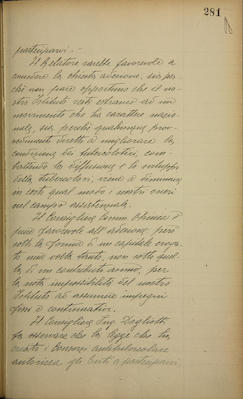 281
partecipanti. -
Il Relatore sarebbe favorevole a
anche la chiesta adesione, sia per-
chè non pare opportuno che il no-
stro Istituto resti estraneo ad un
movimento che ha carattere nazio-
nale, sia perchè qualunque prov-
vedimento diretto a migliorare la
condizione dei tubercolotici, com-
battendo la diffusione e lo sviluppo
della tubercolosi, viene a diminuire
in certo qual modo i nostri oneri
nel campo assistenziale.
Il Consigliere Comm.
pure favorevole all'adesione, però
sotto la forma di un capitale eroga-
to una volta tanto, non sotto quel-
la di un contributo annuo, per
la nota impossibilità del nostro
Istituto ad assumere impegni
fissi e continuativi.
Il Consigliere Ing.
fa osservare che la legge che ha
creato i Consorzi antitubercolari
autorizza gli Enti a parteciparvi